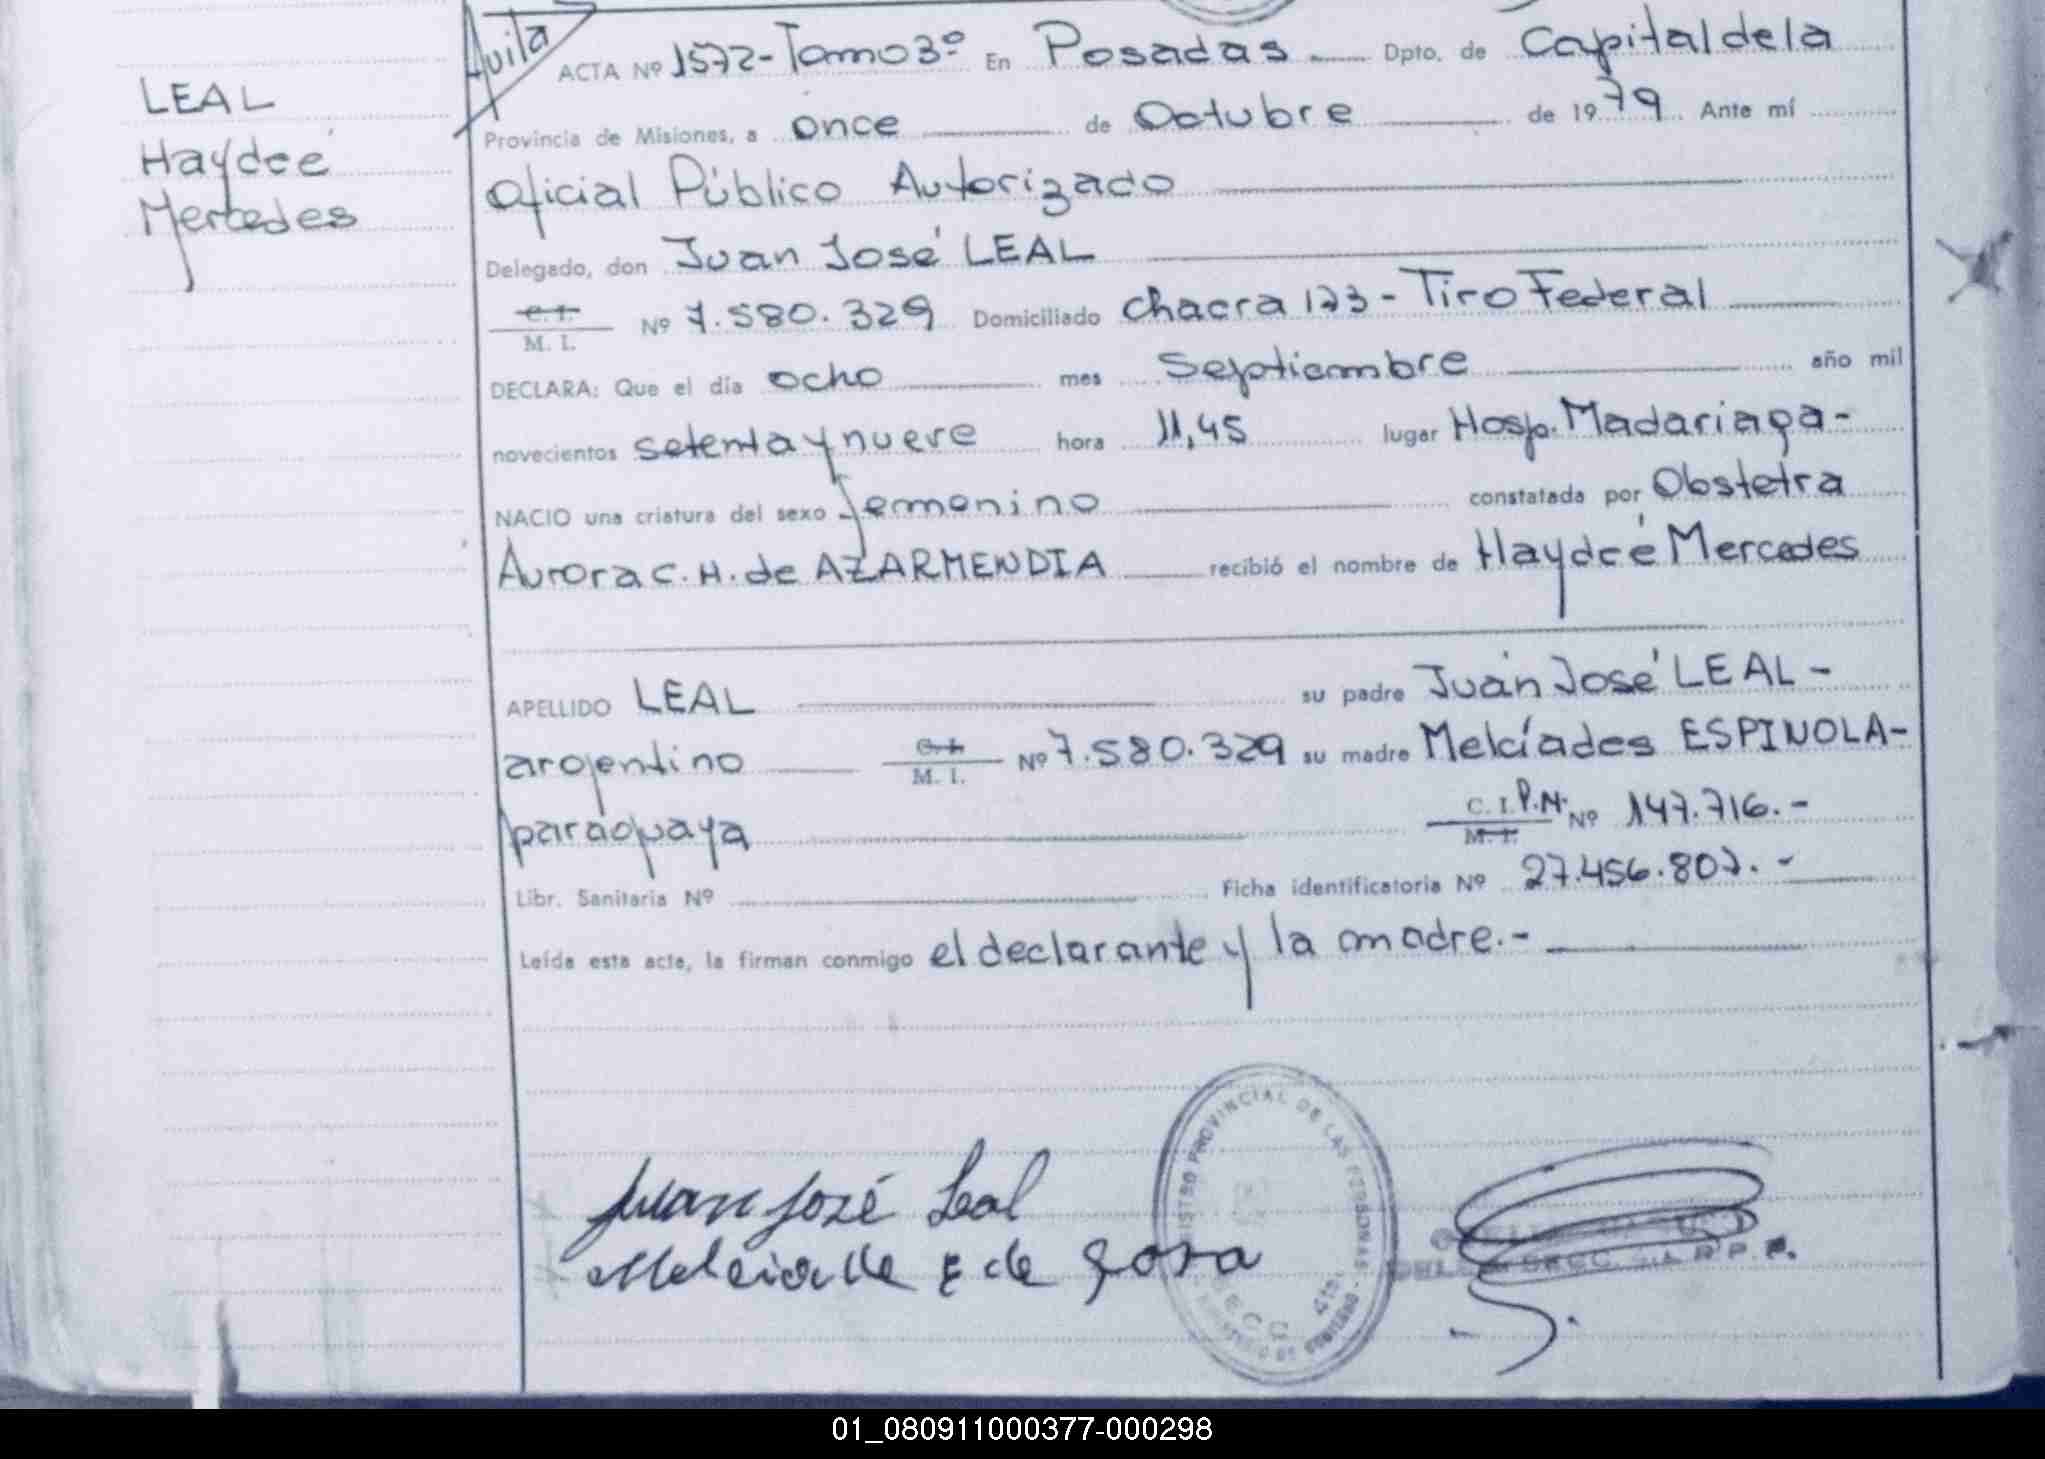 Avila
LEAL
Haydeé
Mercedes
ACTA Nº 1572-Tomo 3º En Posadas Dpto. de Capital de la
Provincia de Misiones, a once de Octubre de 1979 Ante mí
Oficial Público Autorizado
Delegado, don Juan José LEAL
C. I.
M. I. Nº 7.580.329 Domiciliado Chacra 173 - Tiro Federal
DECLARA: Que el día ocho mes Septiembre año mil
novecientos setenta y nueve hora 11,45 lugar Hosp. Madariaga-
NACIO una criatura del sexo femenino constatada por Obstetra
Aurora C. H. de AZARMENDIA recibió el nombre de Haydeé Mercedes
APELLIDO LEAL su padre Juan José LEAL -
argentino C. I.
M. I. Nº 7.580.329 su madre Melcíades ESPINOLA-
paraguaya C. I. P.M.
M. I. Nº 147.716.-
Libr. Sanitaria Nº Ficha identificatoria Nº 27.456.807.-
Leída esta acta, la firman conmigo el declarante y la madre.-
Juan José Leal
E de
REGISTRO PROVINCIAL DE LAS PERSONAS
SECC
MINISTERIO DE GOBIERNO
R. P. P.
01_080911000377-000298